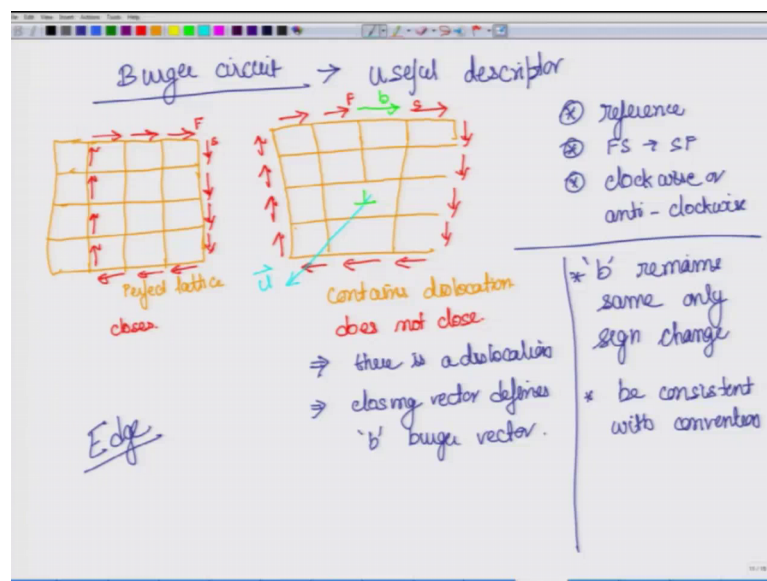 Edit View Insert Actions Tools Help
Burger circuit → useful descriptor
F
S
Perfect lattice
closes.
F b S
u
Contains dislocation
does not close.
⇒ there is a dislocation
⇒ closing vector defines
'b' burger vector.
Edge
⊗ reference
⊗ FS → SF
⊗ clockwise or
anti-clockwise
* 'b' remains
same only
sign change
* be consistent
with convention